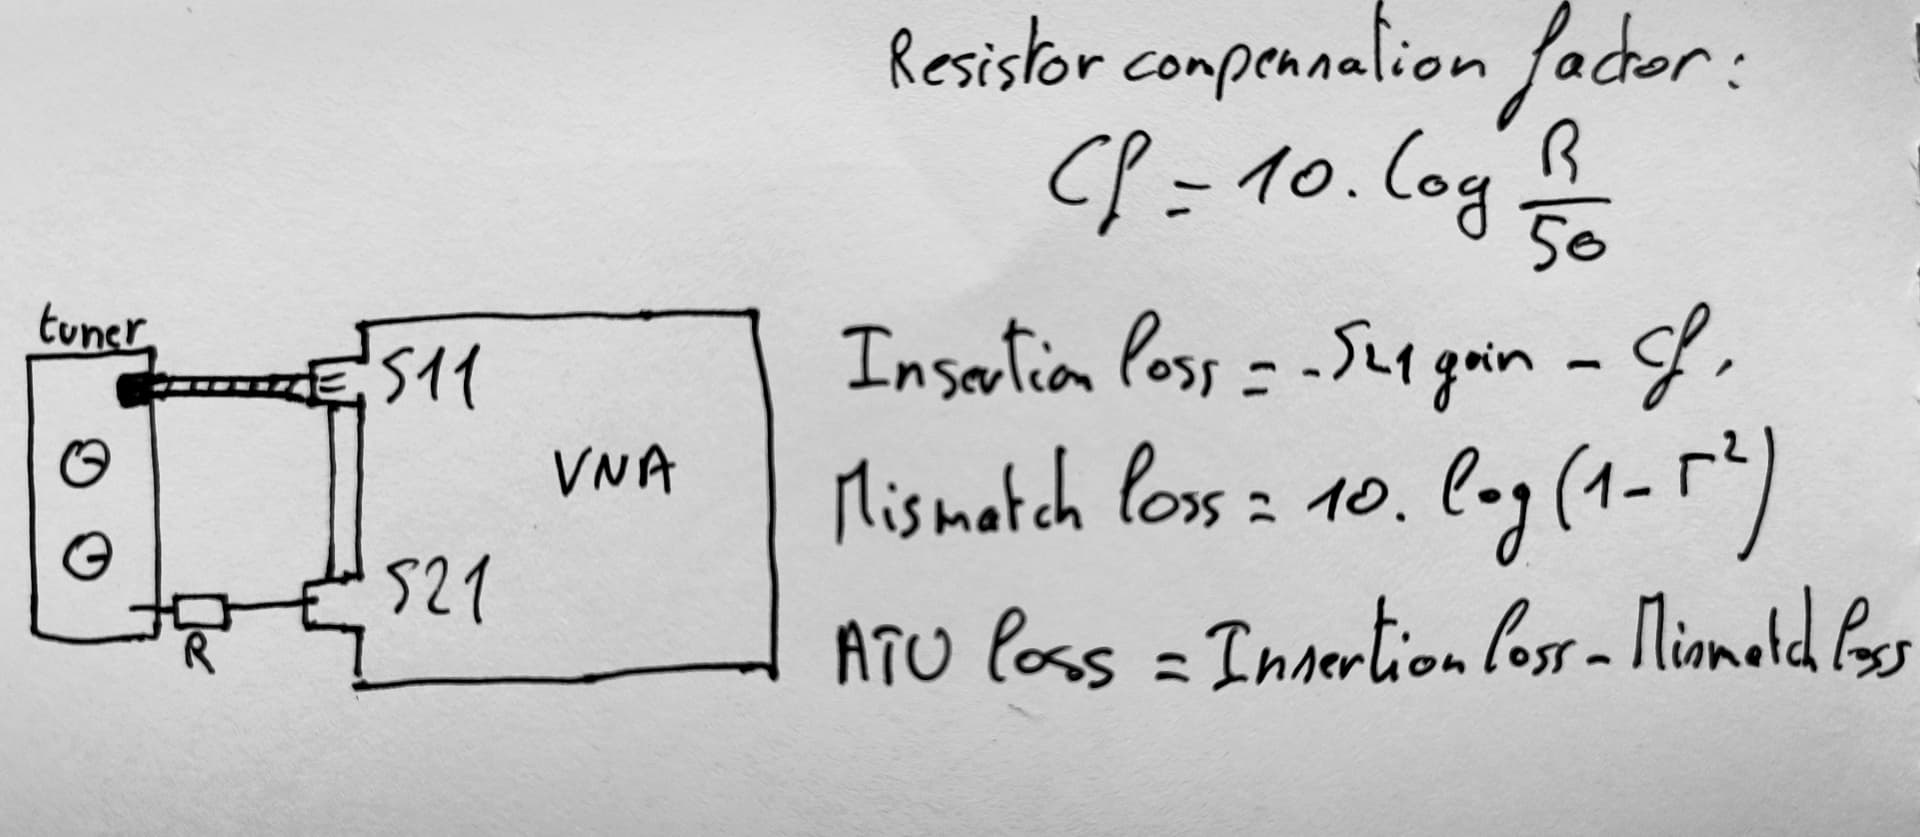 Resistor compensation factor:
Cf = 10. log R/50
tuner
S11
Insertion loss = -S21 gain - Cf.
VNA
Mismatch loss = 10. log (1-Γ²)
S21
R
ATU loss = Insertion loss - Mismatch loss